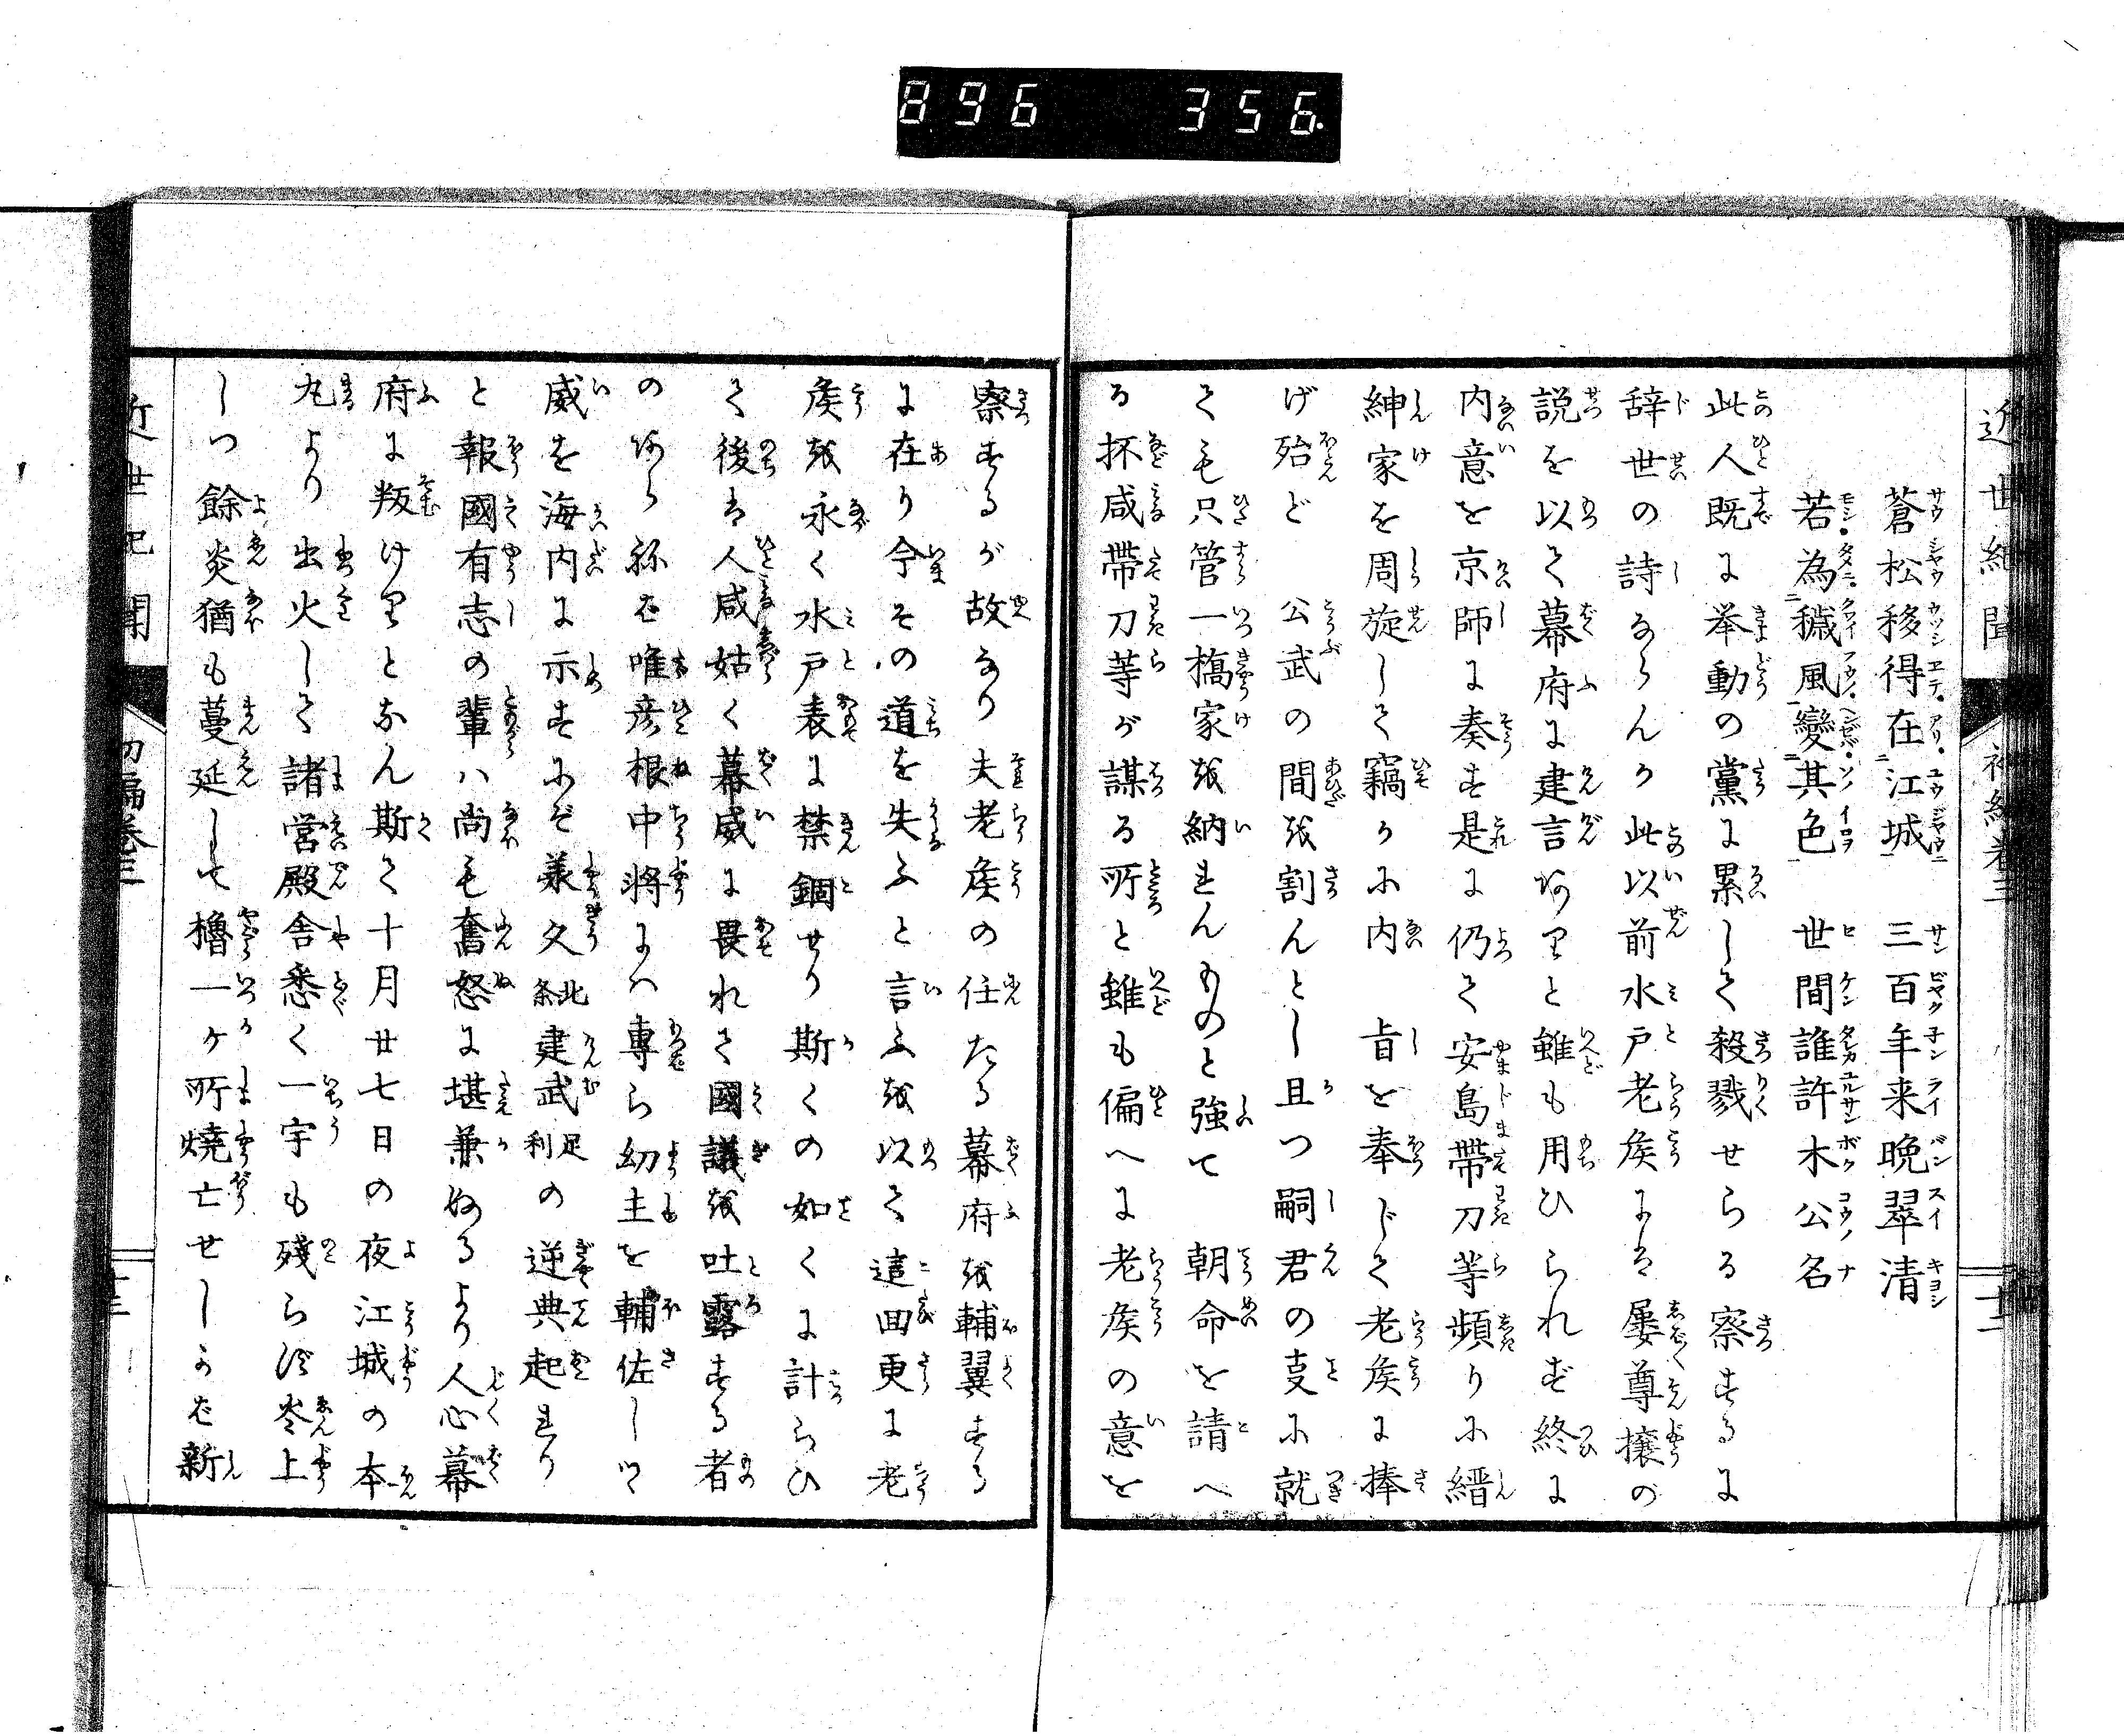 896 356.
近世紀聞 初編巻三 十二
蒼松移得在江城 三百年来晩翠清
若為穢風變其色 世間誰許木公名
此人既に挙動の黨に累して殺戮せらる察するに
辞世の詩ならんか此以前水戸老矦には屡尊攘の
説を以て幕府に建言ありと雖も用ひられず終に
内意を京師に奏す是に仍て安島帶刀等頻りに縉
紳家を周旋して竊かに内 旨を奉じて老矦に捧
げ殆ど 公武の間を割んとし且つ嗣君の支に就
ても只管一橋家を納れんものと強て 朝命を請へ
る抔咸帶刀等が謀る所と雖も偏へに老矦の意を
察するが故なり夫老矦の任たる幕府を輔翼する
に在り今その道を失ふと言ふを以て這回更に老
矦を永く水戸表に禁錮せり斯くの如くに計らひ
て後は人咸姑く幕威に畏れて國議を吐露する者
のあらねば唯彦根中将には専ら幼主を輔佐しつゝ
威を海内に示すにぞ承久北条建武足利の逆典起れり
と報國有志の輩ハ尚も奮怒に堪兼ぬるより人心幕
府に叛けりとなん斯て十月廿七日の夜江城の本
丸より出火して諸営殿舎悉く一宇も残らず炎上
しつ餘炎猶も蔓延して櫓一ケ所焼亡せしかば新
近世紀聞 初編巻三 十三